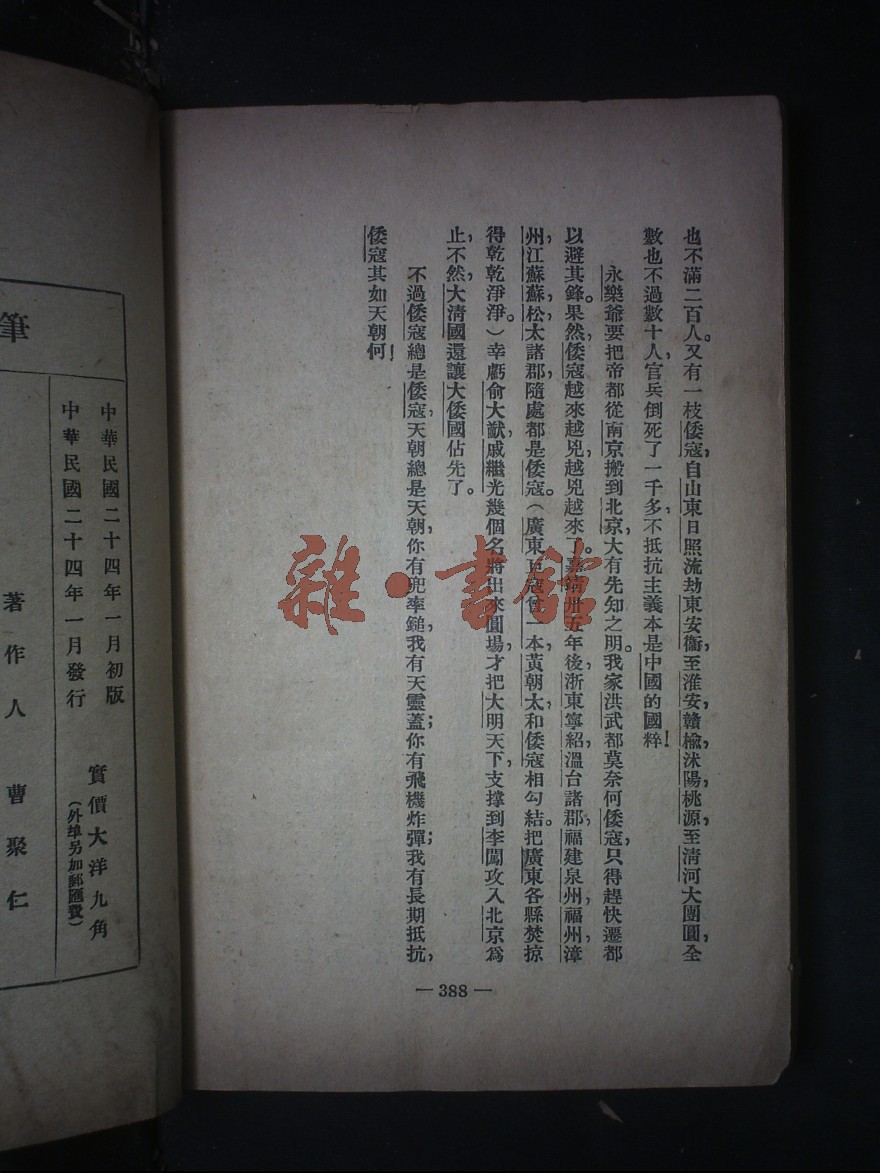 也不滿二百人。又有一枝倭寇，自山東日照流劫東安衞，至淮安，贛榆，沭陽，桃源，至淸河大團圓，全
數也不過數十人，官兵倒死了一千多，不抵抗主義本是中國的國粹！
永樂爺要把帝都從南京搬到北京，大有先知之明。我家洪武都莫奈何倭寇，只得趕快遷都
以避其鋒。果然，倭寇越來越兇，越兇越來了。嘉靖卅五年後，浙東寧紹，溫台諸郡，福建泉州，福州，漳
州，江蘇蘇，松，太諸郡，隨處都是倭寇。（廣東巨寇曾一本，黃朝太，和倭寇相勾結。把廣東各縣焚掠
得乾乾淨淨。）幸虧俞大猷，戚繼光幾個名將出來圓場，才把大明天下，支撐到李闖攻入北京爲
止，不然，大清國還讓大倭國佔先了。
不過倭寇總是倭寇，天朝總是天朝，你有兜率鎚，我有天靈蓋；你有飛機炸彈；我有長期抵抗，
倭寇其如天朝何！
— 388 —
筆
中華民國二十四年一月初版
中華民國二十四年一月發行
實價大洋九角
（外埠另加郵匯費）
著作人 曹聚仁
雜·書館